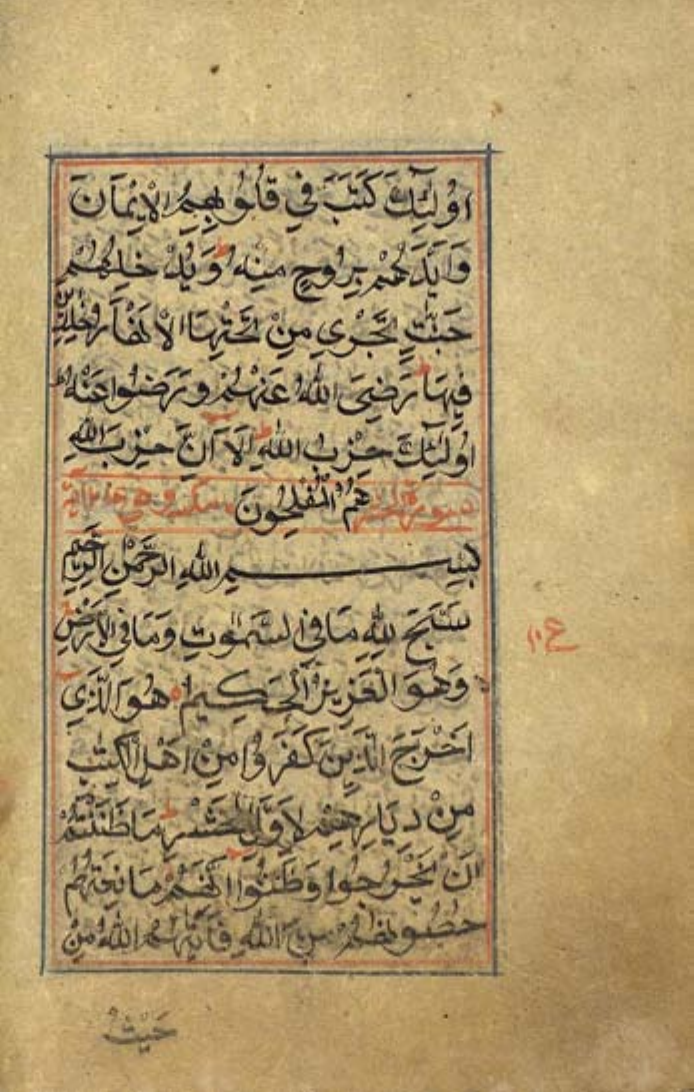 اُولٰٓئِكَ كَتَبَ فِي قُلُوبِهِمُ الْاِيْمَانَ
وَاَيَّدَهُمْ بِرُوحٍ مِنْهُ ط وَيُدْخِلُهُمْ
جَنّٰتٍ تَجْرِي مِنْ تَحْتِهَا الْاَنْهَارُ خٰلِدِيْنَ
فِيْهَا ط رَضِيَ اللهُ عَنْهُمْ وَرَضُوا عَنْهُ ط
اُولٰٓئِكَ حِزْبُ اللهِ ط اَلَا اِنَّ حِزْبَ اللهِ
هُمُ الْمُفْلِحُونَ
سورة الحشر
بِسْمِ اللهِ الرَّحْمٰنِ الرَّحِيْمِ
سَبَّحَ لِلّٰهِ مَا فِي السَّمٰوٰتِ وَمَا فِي الْاَرْضِ
وَهُوَ الْعَزِيْزُ الْحَكِيْمُ هُوَ الَّذِي
اَخْرَجَ الَّذِيْنَ كَفَرُوْا مِنْ اَهْلِ الْكِتٰبِ
مِنْ دِيَارِهِمْ لِاَوَّلِ الْحَشْرِ ط مَا ظَنَنْتُمْ
اَنْ يَخْرُجُوا وَظَنُّوْا اَنَّهُمْ مَانِعَتُهُمْ
حُصُوْنُهُمْ مِنَ اللهِ فَاَتٰىهُمُ اللهُ مِنْ
حَيْثُ